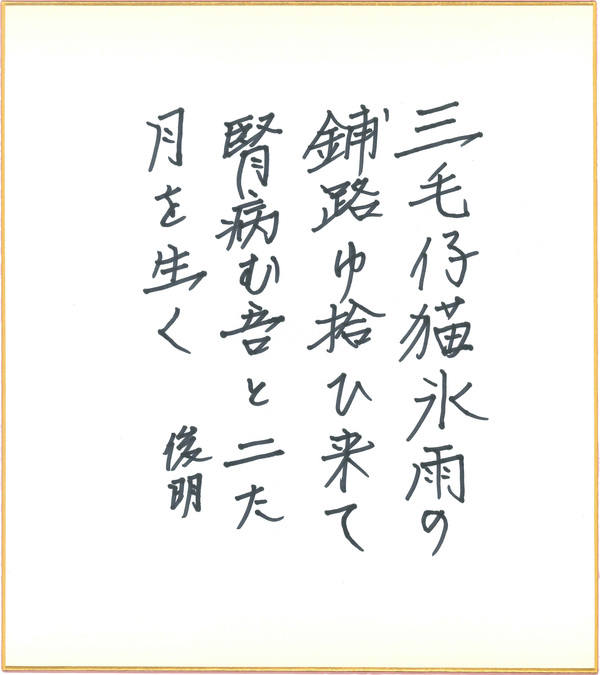 三毛仔猫氷雨の
鋪路ゆ拾ひ来て
腎病む吾と二た
月を生く
俊明